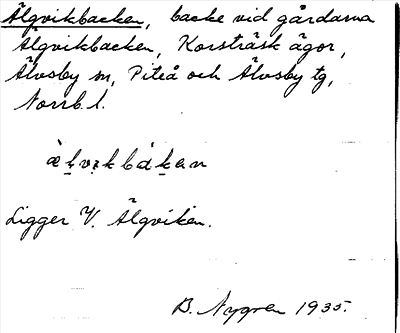 Älgvikbacken, backe vid gårdarna
Älgvikbacken, Korsträsk ägor,
Älvsby sn, Piteå och Älvsby tg,
Norrb. l.
Ligger V. Älgviken.
B. Nygren 1935.